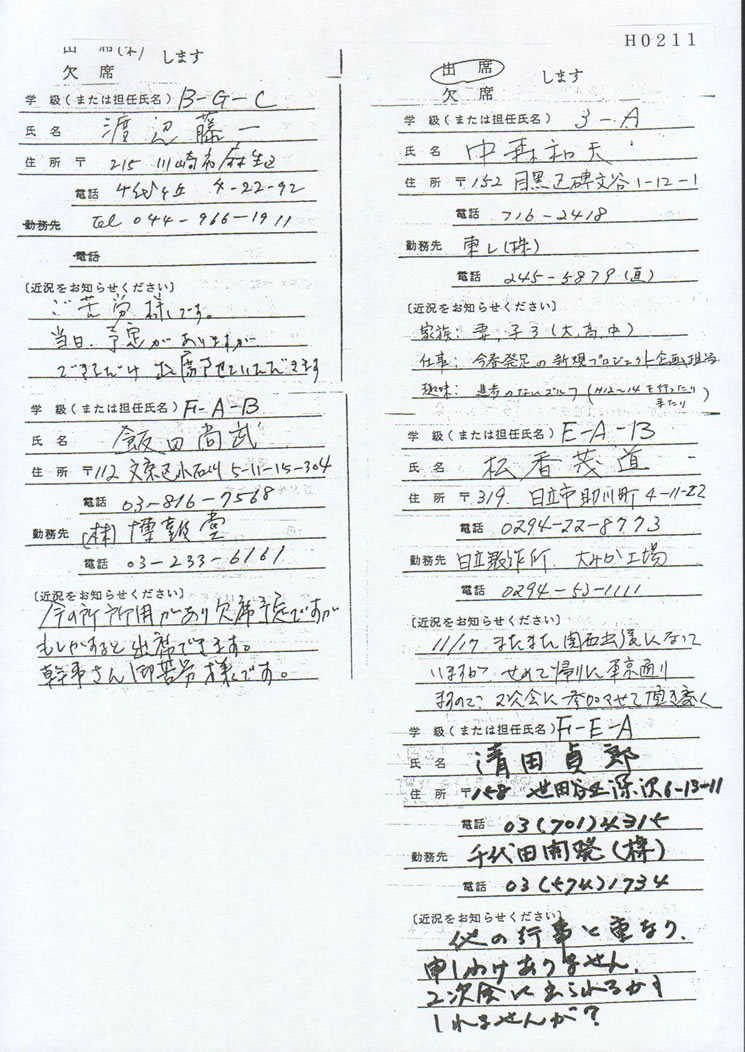 H0211
出席(未)
欠席 します
学級(または担任氏名) B-G-C
氏名 渡辺藤一
住所 〒215 川崎市麻生区
電話 千代ヶ丘 4-22-92
勤務先 Tel 044-966-1911
電話
〔近況をお知らせください〕
ご苦労様です。
当日、予定がありますが
できるだけ出席させていただきます
学級(または担任氏名) F-A-B
氏名 飯田尚武
住所 〒112 文京区小石川 5-11-15-304
電話 03-816-7568
勤務先 (株)博報堂
電話 03-233-6161
〔近況をお知らせください〕
今の所所用があり欠席予定ですが
もしかすると出席できます。
幹事さん御苦労様です。
出席
欠席 します
学級(または担任氏名) 3-A
氏名 中森和夫
住所 〒152 目黒区碑文谷1-12-1
電話 716-2418
勤務先 東レ(株)
電話 245-5879(直)
〔近況をお知らせください〕
家族: 妻,子3(大,高,中)
仕事: 今春発足の新規プロジェクト企画担当
趣味: 進歩のないゴルフ(H12~14を行ったり
きたり)
学級(または担任氏名) E-A-B
氏名 松香茂道
住所 〒319. 日立市助川町 4-11-22
電話 0294-22-8773
勤務先 日立製作所. 大みか工場
電話 0294-53-1111
〔近況をお知らせください〕
11/17 またまた関西出張になって
いますが、せめて帰りに東京通り
ますので、2次会に参加させて頂き度く
学級(または担任氏名) F-E-A
氏名 清田貞郎
住所 〒158 世田谷区深沢6-13-11
電話 03(701)4315
勤務先 千代田開発(株)
電話 03(574)1734
〔近況をお知らせください〕
他の行事と重なり、
申しわけありません.
2次会に出られるかも
しれませんが?